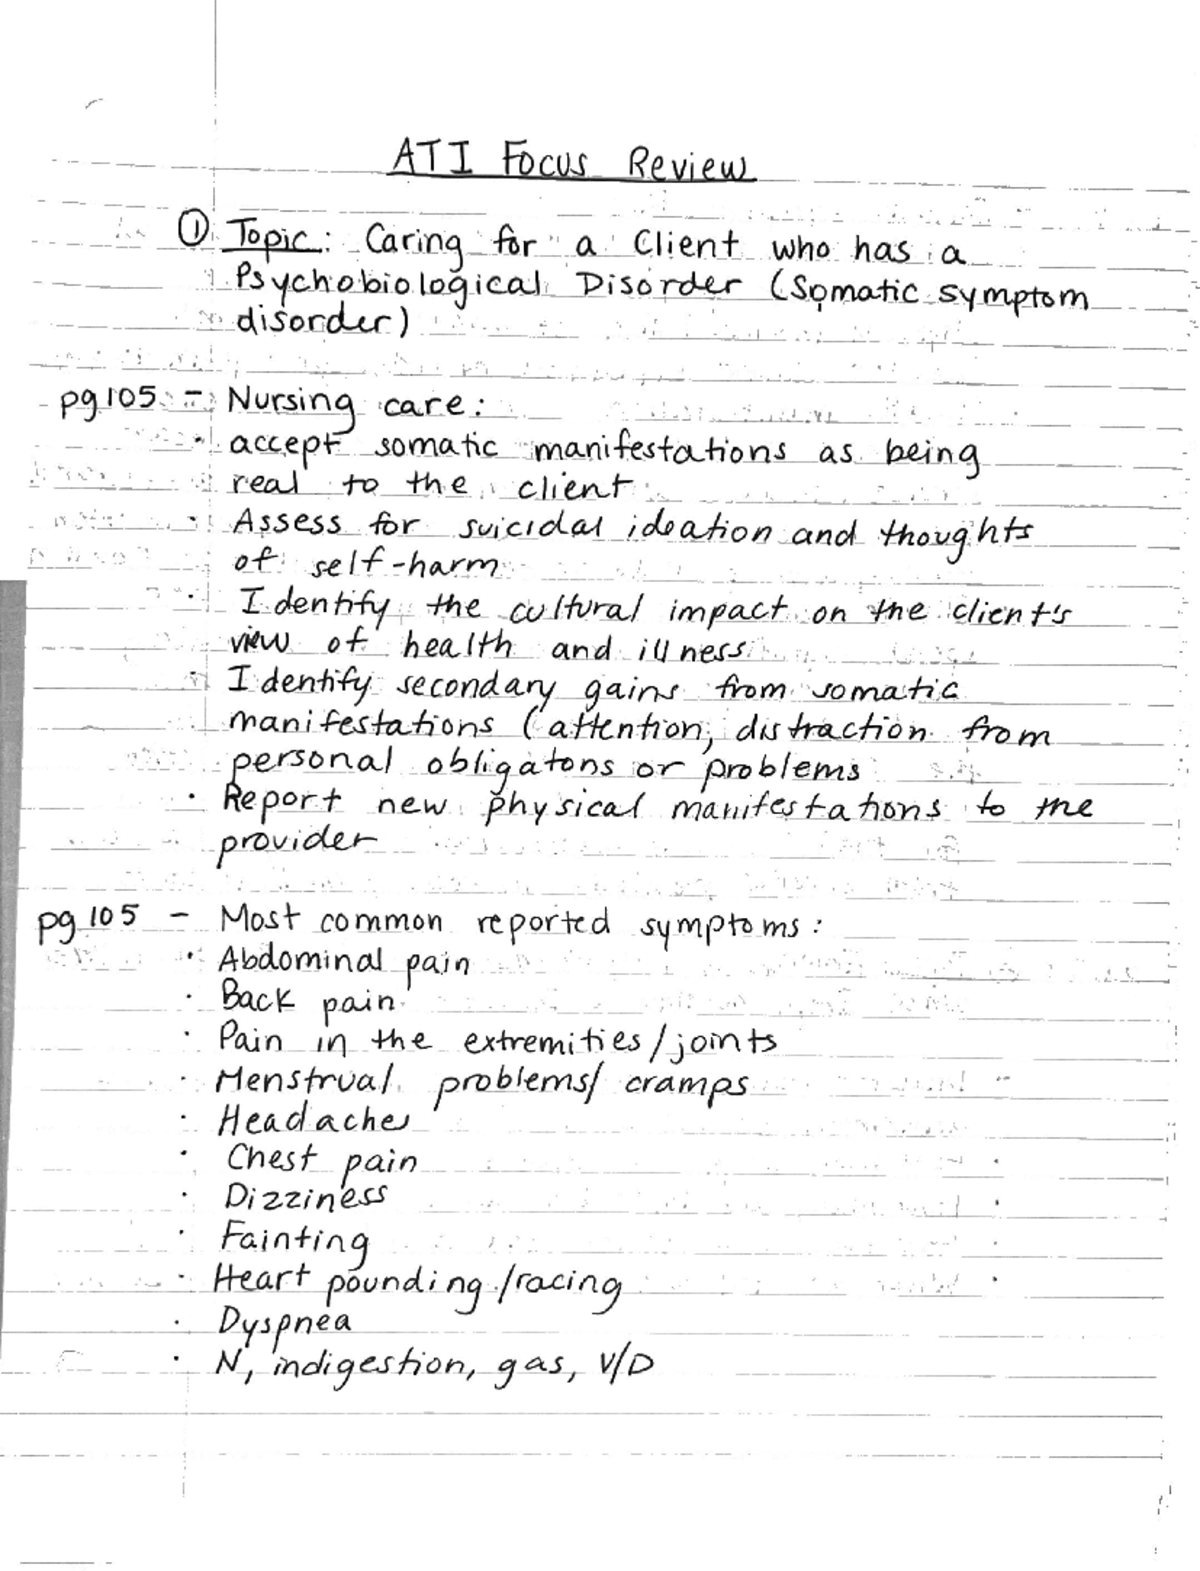 ATI Focus Review
① Topic: Caring for a Client who has a
Psychobiological Disorder (Somatic symptom
disorder)
pg 105 - Nursing care:
· accept somatic manifestations as being
real to the client
· Assess for suicidal ideation and thoughts
of self-harm
· Identify the cultural impact on the client's
view of health and illness
· Identify secondary gains from somatic
manifestations (attention, distraction from
personal obligatons or problems
· Report new physical manifestations to the
provider
pg 105 - Most common reported symptoms:
· Abdominal pain
· Back pain
· Pain in the extremities/joints
· Menstrual problems/ cramps
· Headaches
· Chest pain
· Dizziness
· Fainting
· Heart pounding/racing
· Dyspnea
· N, indigestion, gas, V/D